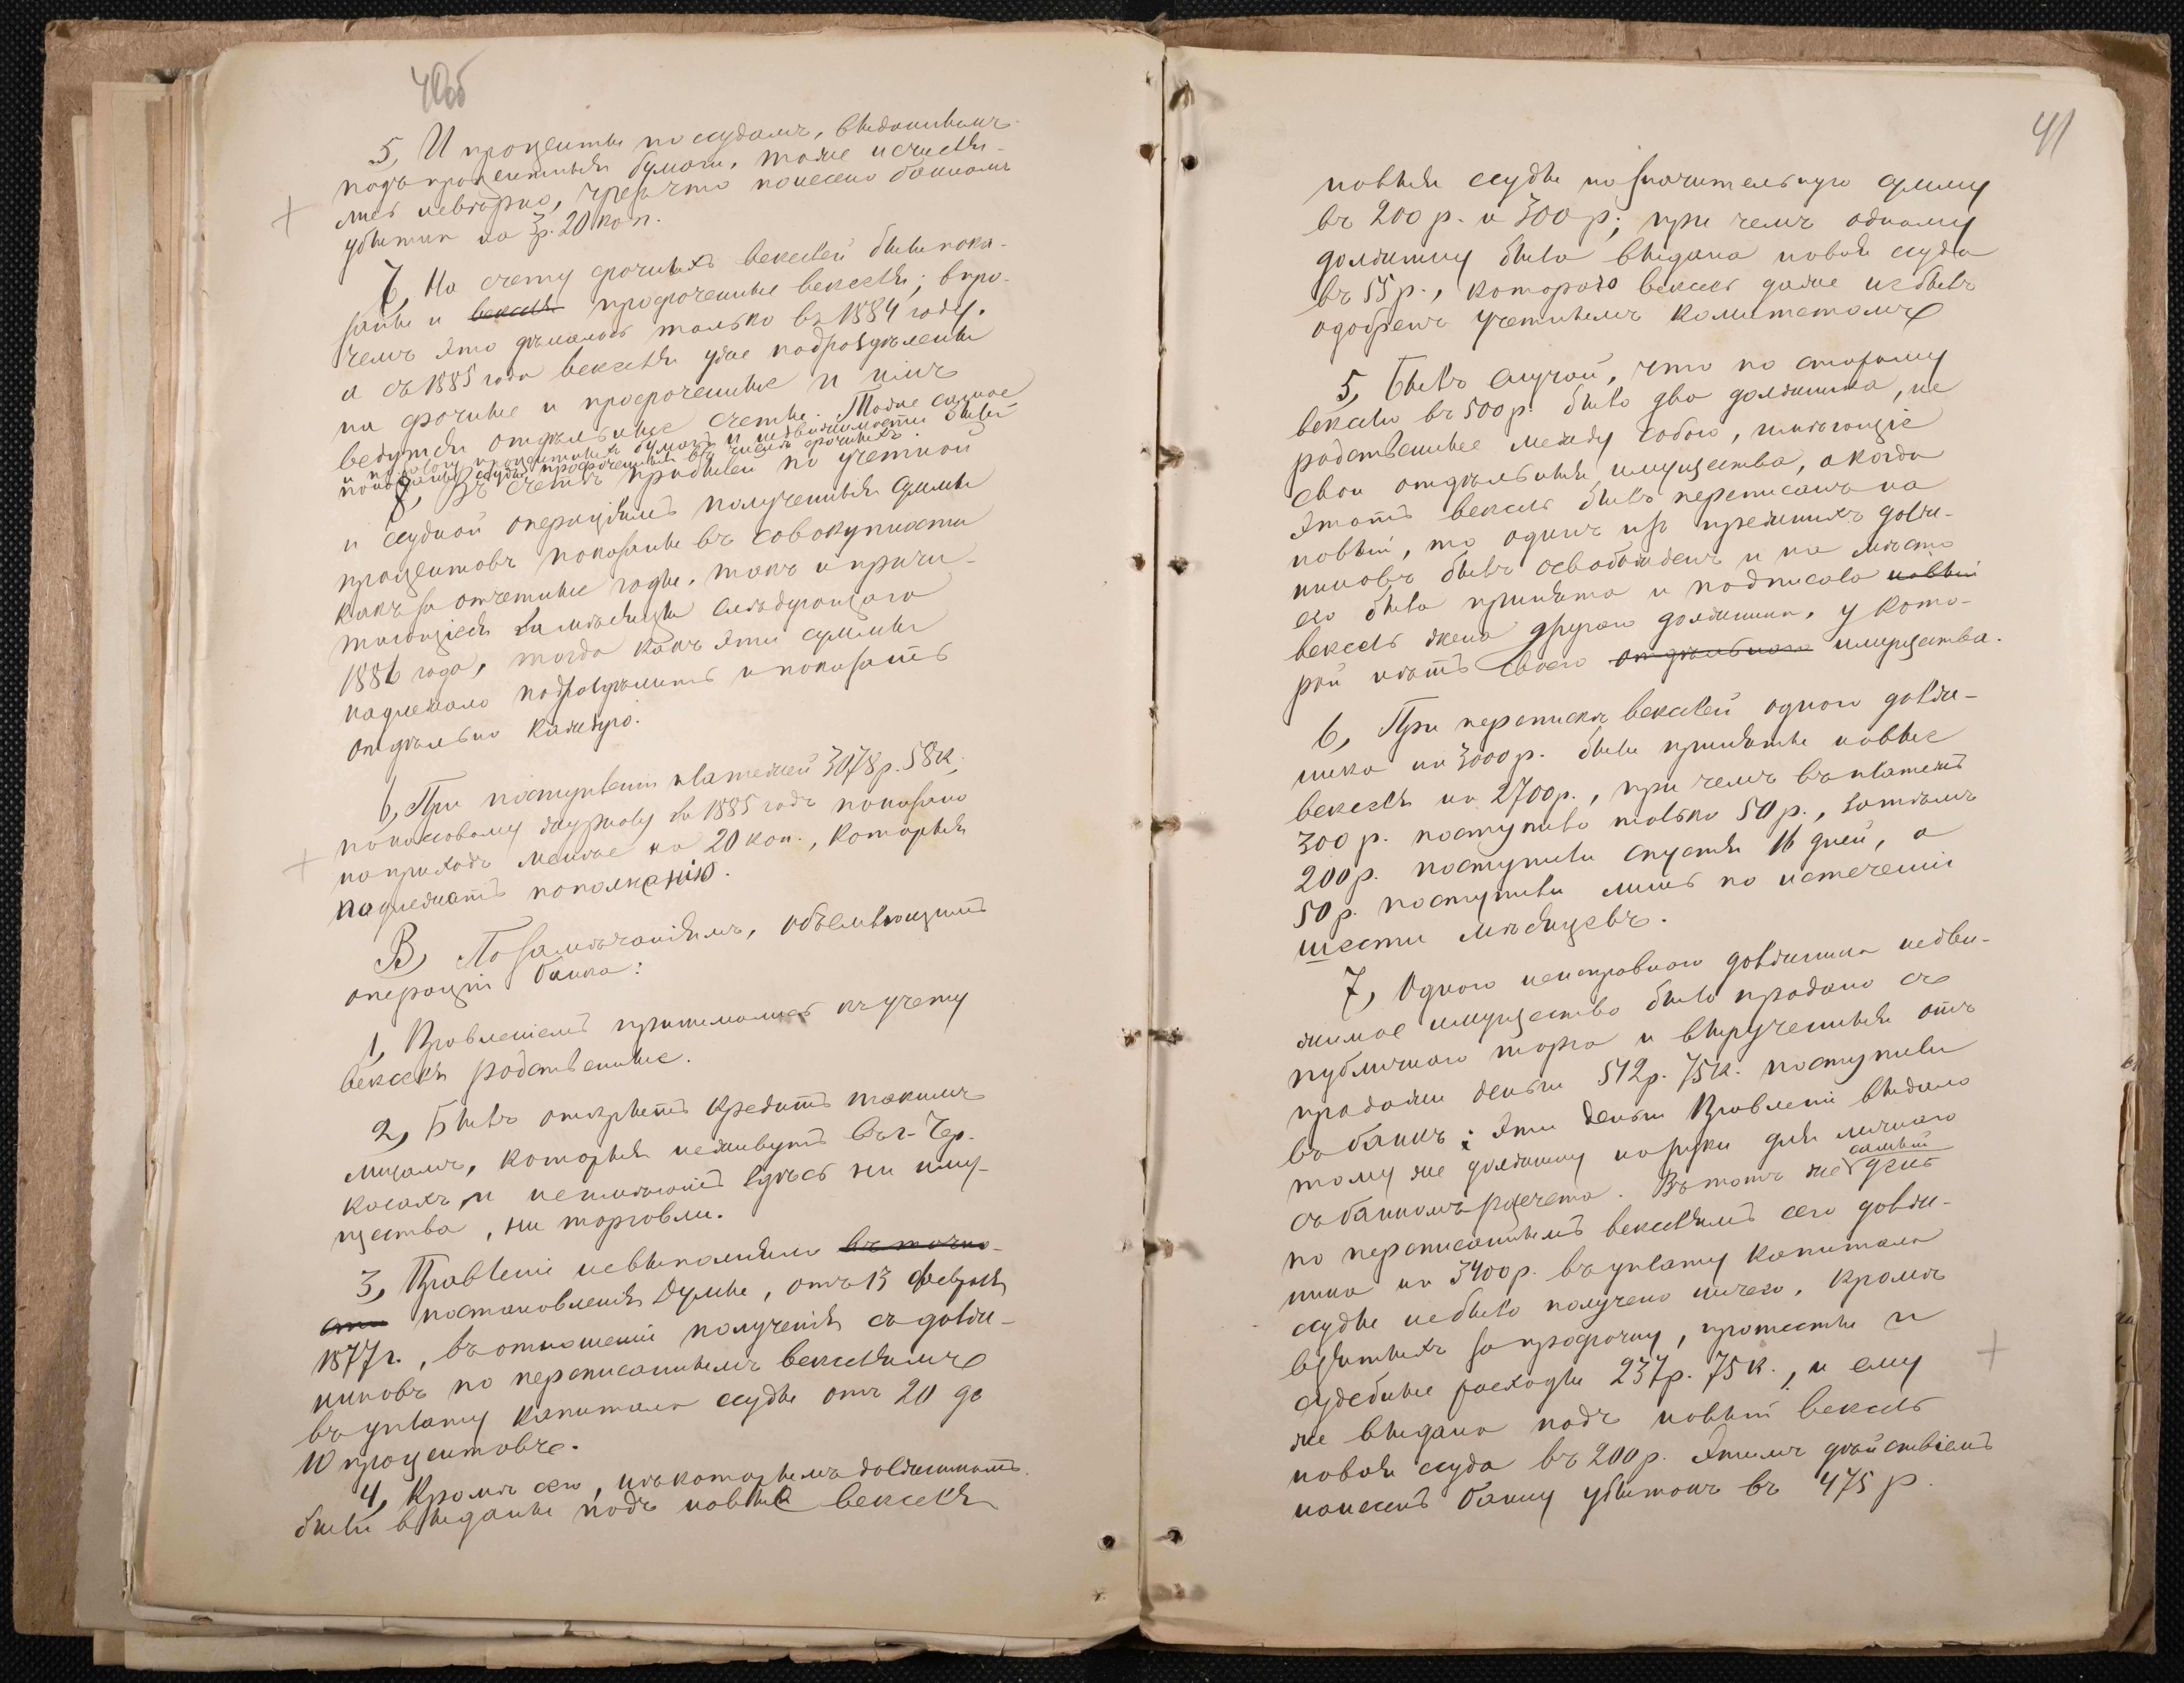 40об
5, И проценты по ссудамъ, выданнымъ
подъ процентныя бумаги, тоже исчисля-
лись невѣрно, чрезъ что понесено банкомъ
убытки на 3р. 20 коп.
На счету срочныхъ векселей были пока-
заны и векселя просроченные векселя; впро-
чемъ это дѣлалось только въ 1884 году,
а съ 1885 года векселя уже подраздѣлены
на срочные и просроченные и имъ
ведутся отдѣльные счеты. Тоже самое
и по залогу процентныхъ бумагъ и недвижимости были
показаны ссуды просроченныя въ числѣ срочныхъ.
Въ счетѣ прибылей по учетной
и ссудной операціямъ полученныя суммы
процентовъ показаны въ совокупности
какъ за отчетные годы, такъ и причи-
тающіеся за мѣсяцы слѣдующаго
1886 года, тогда какъ эти суммы
надлежало подраздѣлить и показать
отдѣльно каждую.
При поступленіи платежей 3078р. 58к.
по кассовому журналу за 1885 годъ показано
на приходъ менѣе на 20 коп., которыя
надлежатъ пополненію.
В, По замѣчаніямъ, объемлющимъ
операціи банка:
1, Правленіемъ принимались къ учету
векселя родственные.
2, Былъ открытъ кредитъ такимъ
лицамъ, которыя не живутъ въ г. Чер-
касахъ, и не имѣютъ здѣсь ни иму-
щества, ни торговли.
3, Правленіе не выполняло въ точно-
сти постановленія Думы, отъ 13 февраля
1877 г., въ отношеніи полученія съ долж-
никовъ по переписаннымъ векселямъ
въ уплату капитала ссуды отъ 20 до
10 процентовъ.
4, Кромѣ сего, нѣкоторымъ должникамъ
были выданы подъ новые векселя
41
новыя ссуды на значительную сумму
въ 200 р. и 300 р.; при чемъ одному
должнику была выдана новая ссуда
въ 55 р., котораго вексель даже не былъ
одобренъ учетнымъ комитетомъ.
5, Былъ случай, что по старому
векселю въ 500 р. было два должника, не
родственные между собою, имѣющіе
свои отдѣльныя имущества, а когда
этотъ вексель былъ переписанъ на
новый, то одинъ изъ прежнихъ долж-
никовъ былъ освобожденъ и на мѣсто
его была принята и подписала новый
вексель жена другого должника, у кото-
рой нѣтъ своего отдѣльнаго имущества.
6, При перепискѣ векселей одного долж-
ника на 3000 р. были приняты новые
векселя на 2700 р., при чемъ въ платежъ
300 р. поступило только 50 р., затѣмъ
200 р. поступили спустя 16 дней, а
50 р. поступили лишь по истеченіи
шести мѣсяцевъ.
7, Одного неисправнаго должника недви-
жимое имущество было продано съ
публичнаго торга и вырученныя отъ
продажи деньги 512 р. 75 к. поступили
въ банкъ; эти деньги Правленіе выдало
тому же должнику на руки для личнаго
съ банкомъ расчета. Въ тотъ же самый день
по переписаннымъ векселямъ сего долж-
ника на 3400 р. въ уплату капитала
ссуды не было получено ничего, кромѣ
взятыхъ за просрочку, протесты и
судебные расходы 237 р. 75 к., и ему
же выдана подъ новый вексель
новая ссуда въ 200 р. Этимъ дѣйствіемъ
нанесенъ банку убытокъ въ 475 р.